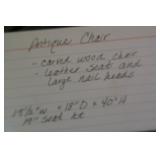 Antique Chair
- carved wood chair
- leather seat and
large nail heads
"w x 18" D x 40" H
19" seat ht